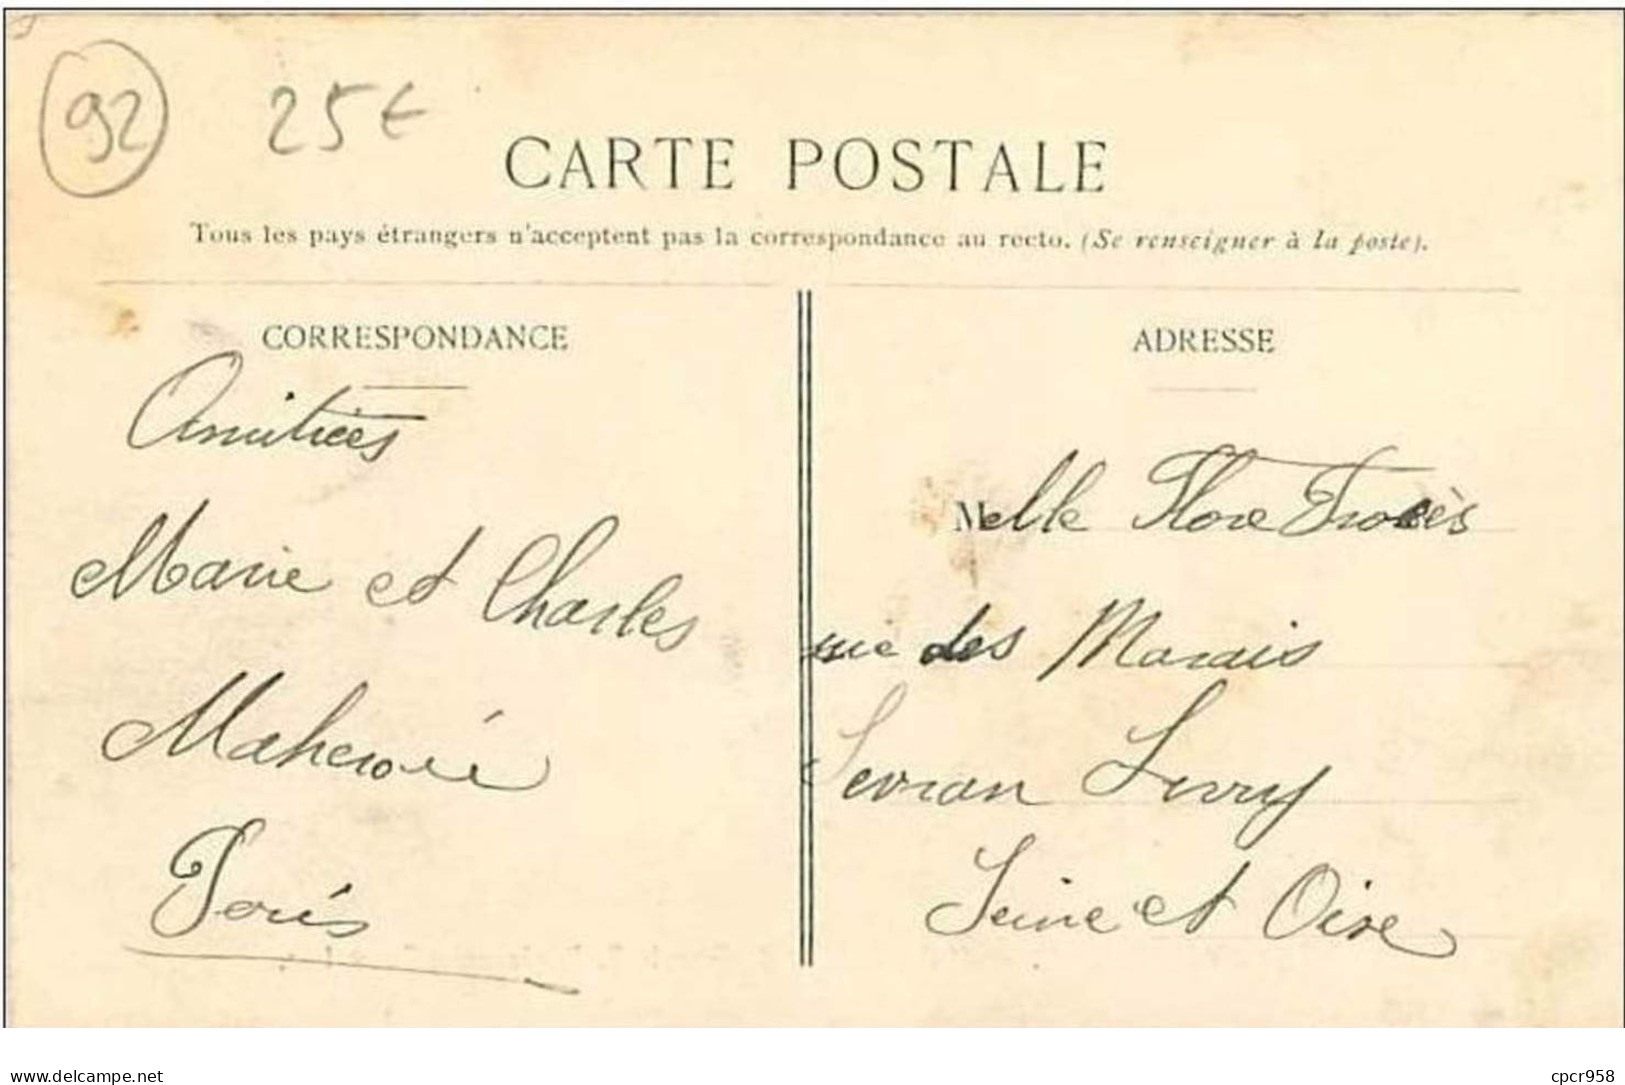 92
25€
CARTE POSTALE
Tous les pays étrangers n'acceptent pas la correspondance au recto. (Se renseigner à la poste).
CORRESPONDANCE
Amitiées
Marie et Charles
Paris
ADRESSE
Melle Flore
rue des Marais
Sevran Livry
Seine et Oise
www.delcampe.net
cpcr958